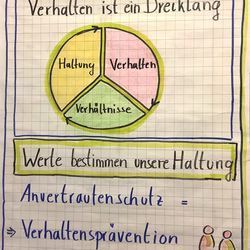 Verhalten ist ein Dreiklang
Haltung
Verhalten
Verhältnisse
Werte bestimmen unsere Haltung
Anvertrautenschutz =
⇒ Verhaltensprävention